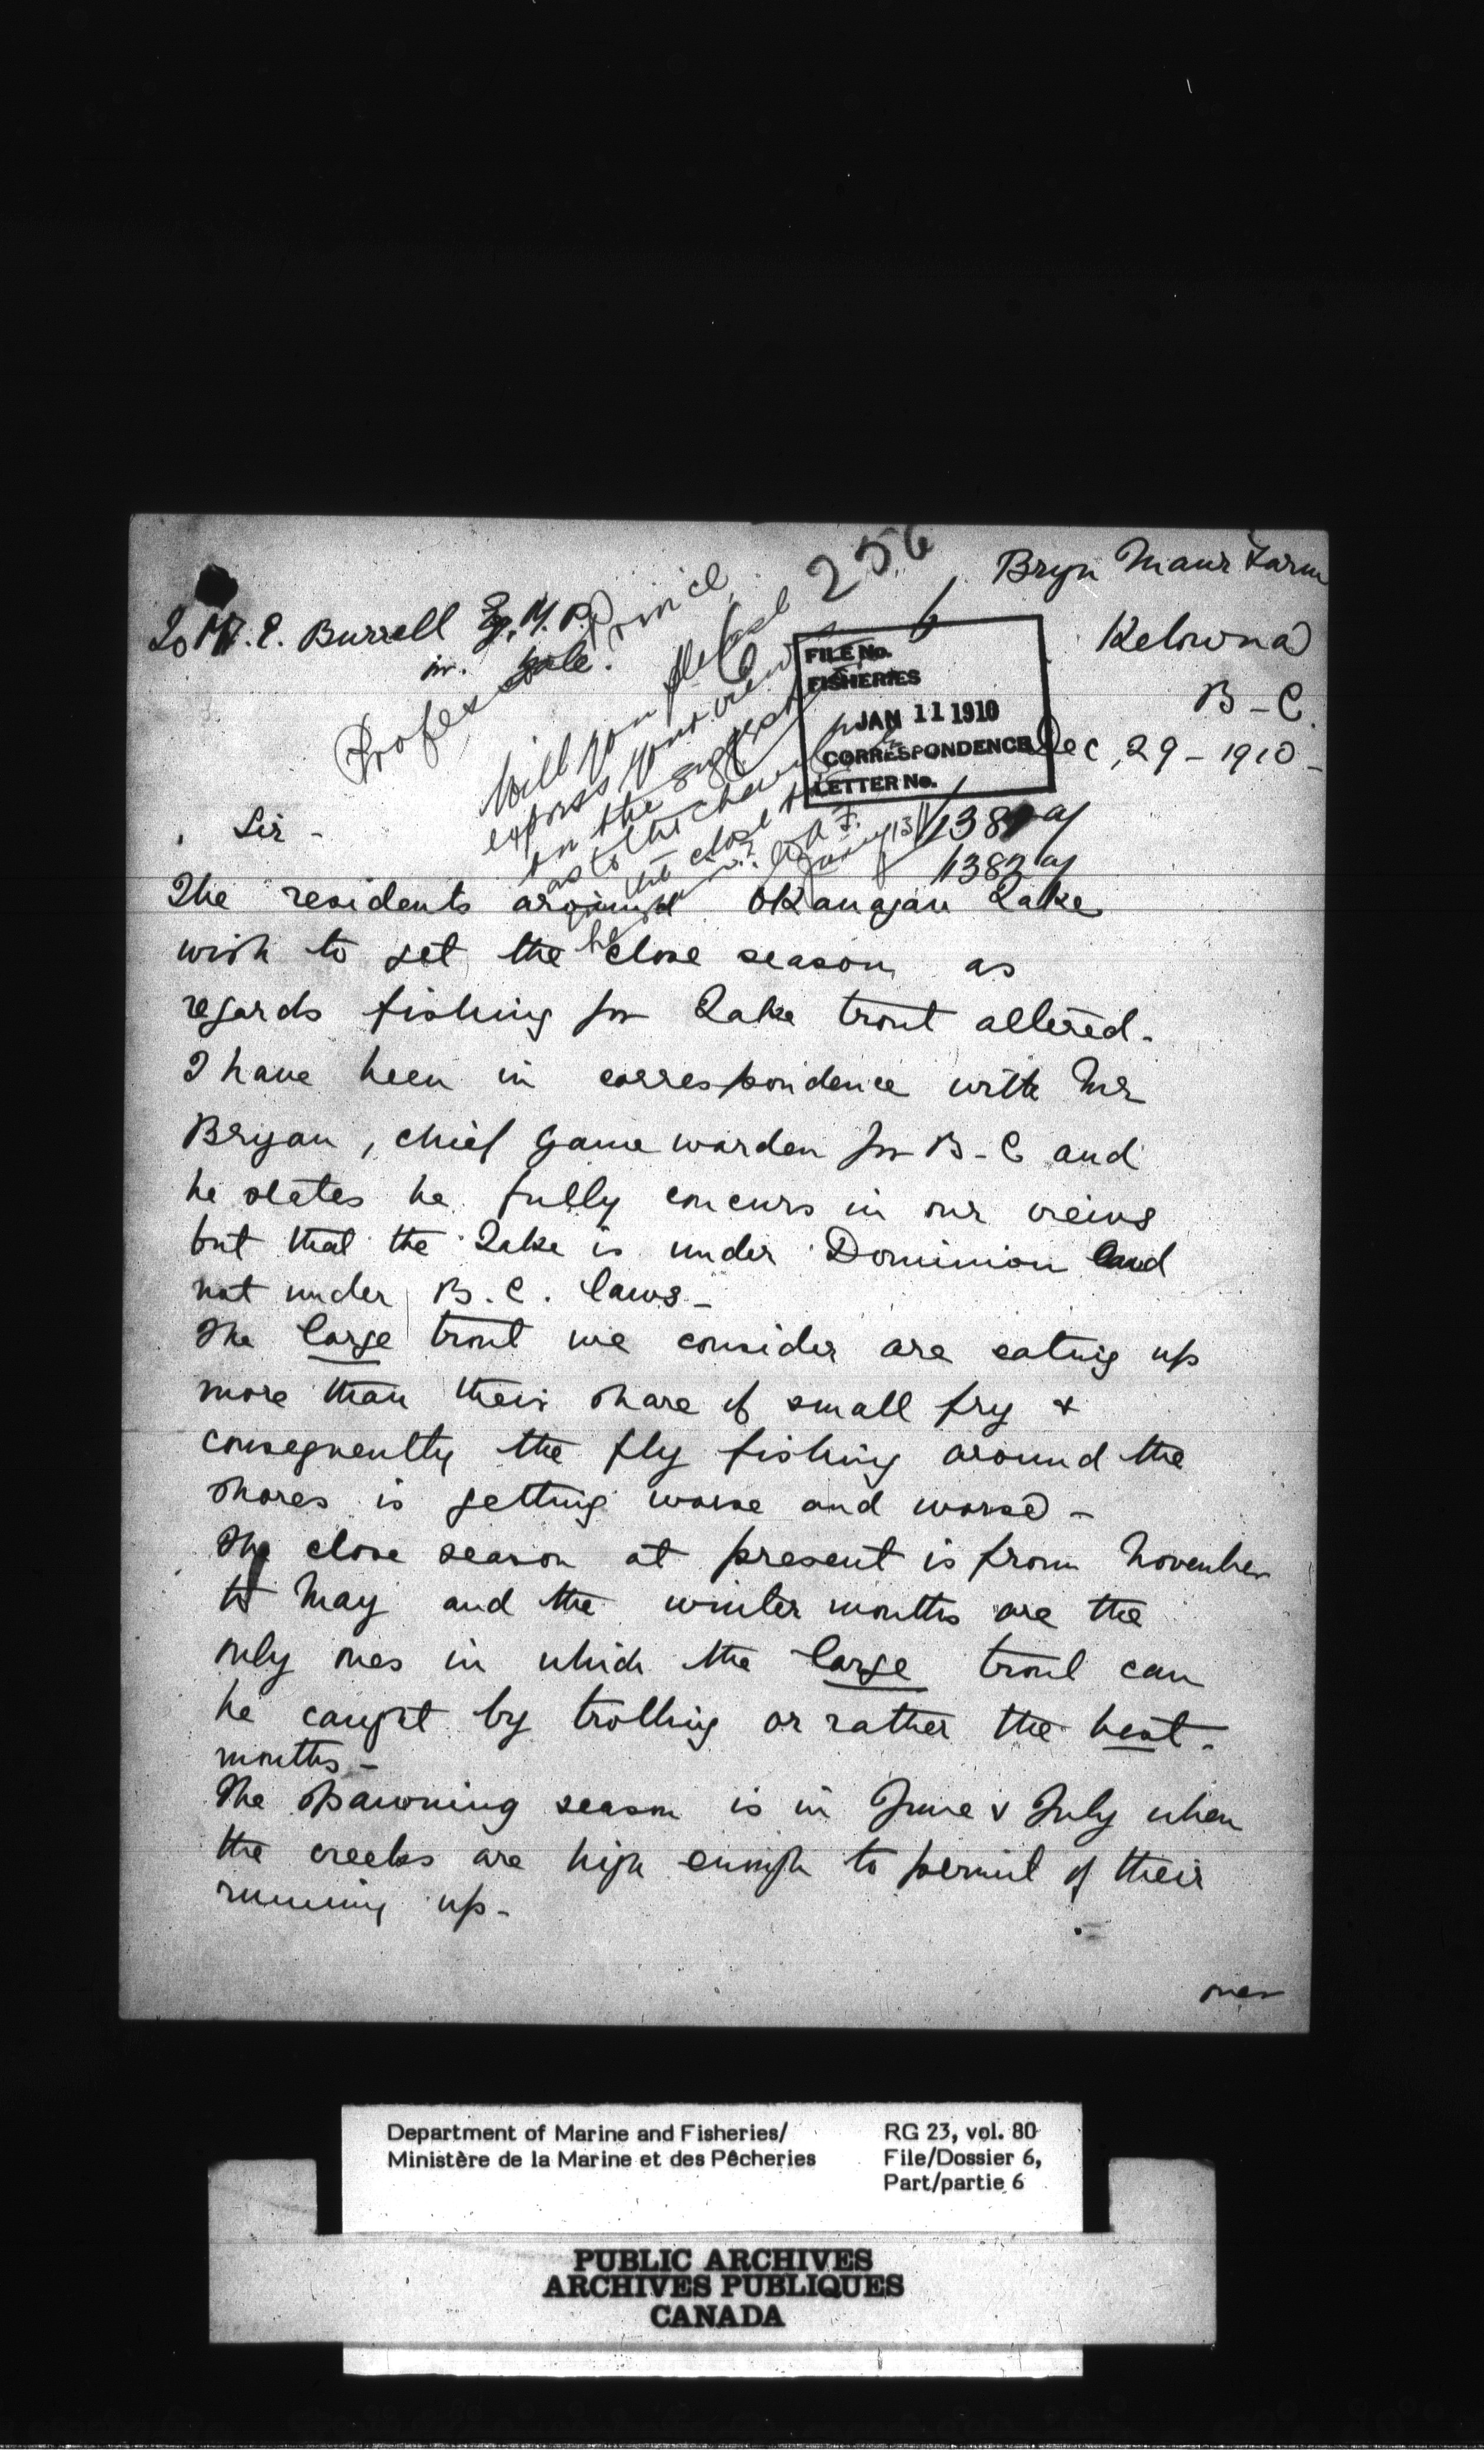 256
Bryn Maur Farm
To M. E. Burrell Esq. M. P.
Kelowna
B-C.
Dec, 29 - 1910 -
Professor Prince,
Will you please
express your views
on the suggestion
as to the change
the close
FILE No.
FISHERIES
JAN 11 1910
CORRESPONDENCE
LETTER No.
6
Sir -
The residents around Okanagan Lake
wish to get the close season as
regards fishing for Lake trout altered.
I have been in correspondence with Mr
Bryan, chief Game warden for B-C and
he states he fully concurs in our views
but that the Lake is under Dominion and
not under B.C. laws -
The large trout we consider are eating up
more than their share of small fry &
consequently the fly fishing around the
shores is getting worse and worse -
The close season at present is from November
to May and the winter months are the
only ones in which the large trout can
be caught by trolling or rather the best -
months -
The spawning season is in June & July when
the creeks are high enough to permit of their
running up -
over
Department of Marine and Fisheries/
Ministère de la Marine et des Pêcheries
RG 23, vol. 80
File/Dossier 6,
Part/partie 6
PUBLIC ARCHIVES
ARCHIVES PUBLIQUES
CANADA